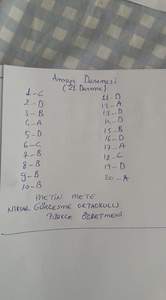 Anlam Denemesi
(21. Deneme)
1 - C
2 - D
3 - B
4 - A
5 - D
6 - C
7 - B
8 - B
9 - B
10 - B
11 - D
12 - A
13 - D
14 - D
15 - B
16 - D
17 - A
18 - C
19 - D
20 - A
METİN METE
ORTAOKULU
TÜRKÇE ÖĞRETMENİ